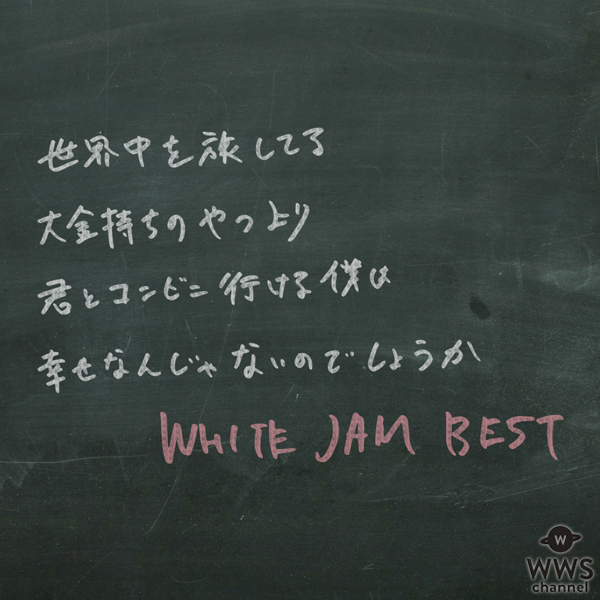 世界中を旅してる
大金持ちのやつより
君とコンビニ行ける僕は
幸せなんじゃないのでしょうか
WHITE JAM BEST
W
WWS
channel